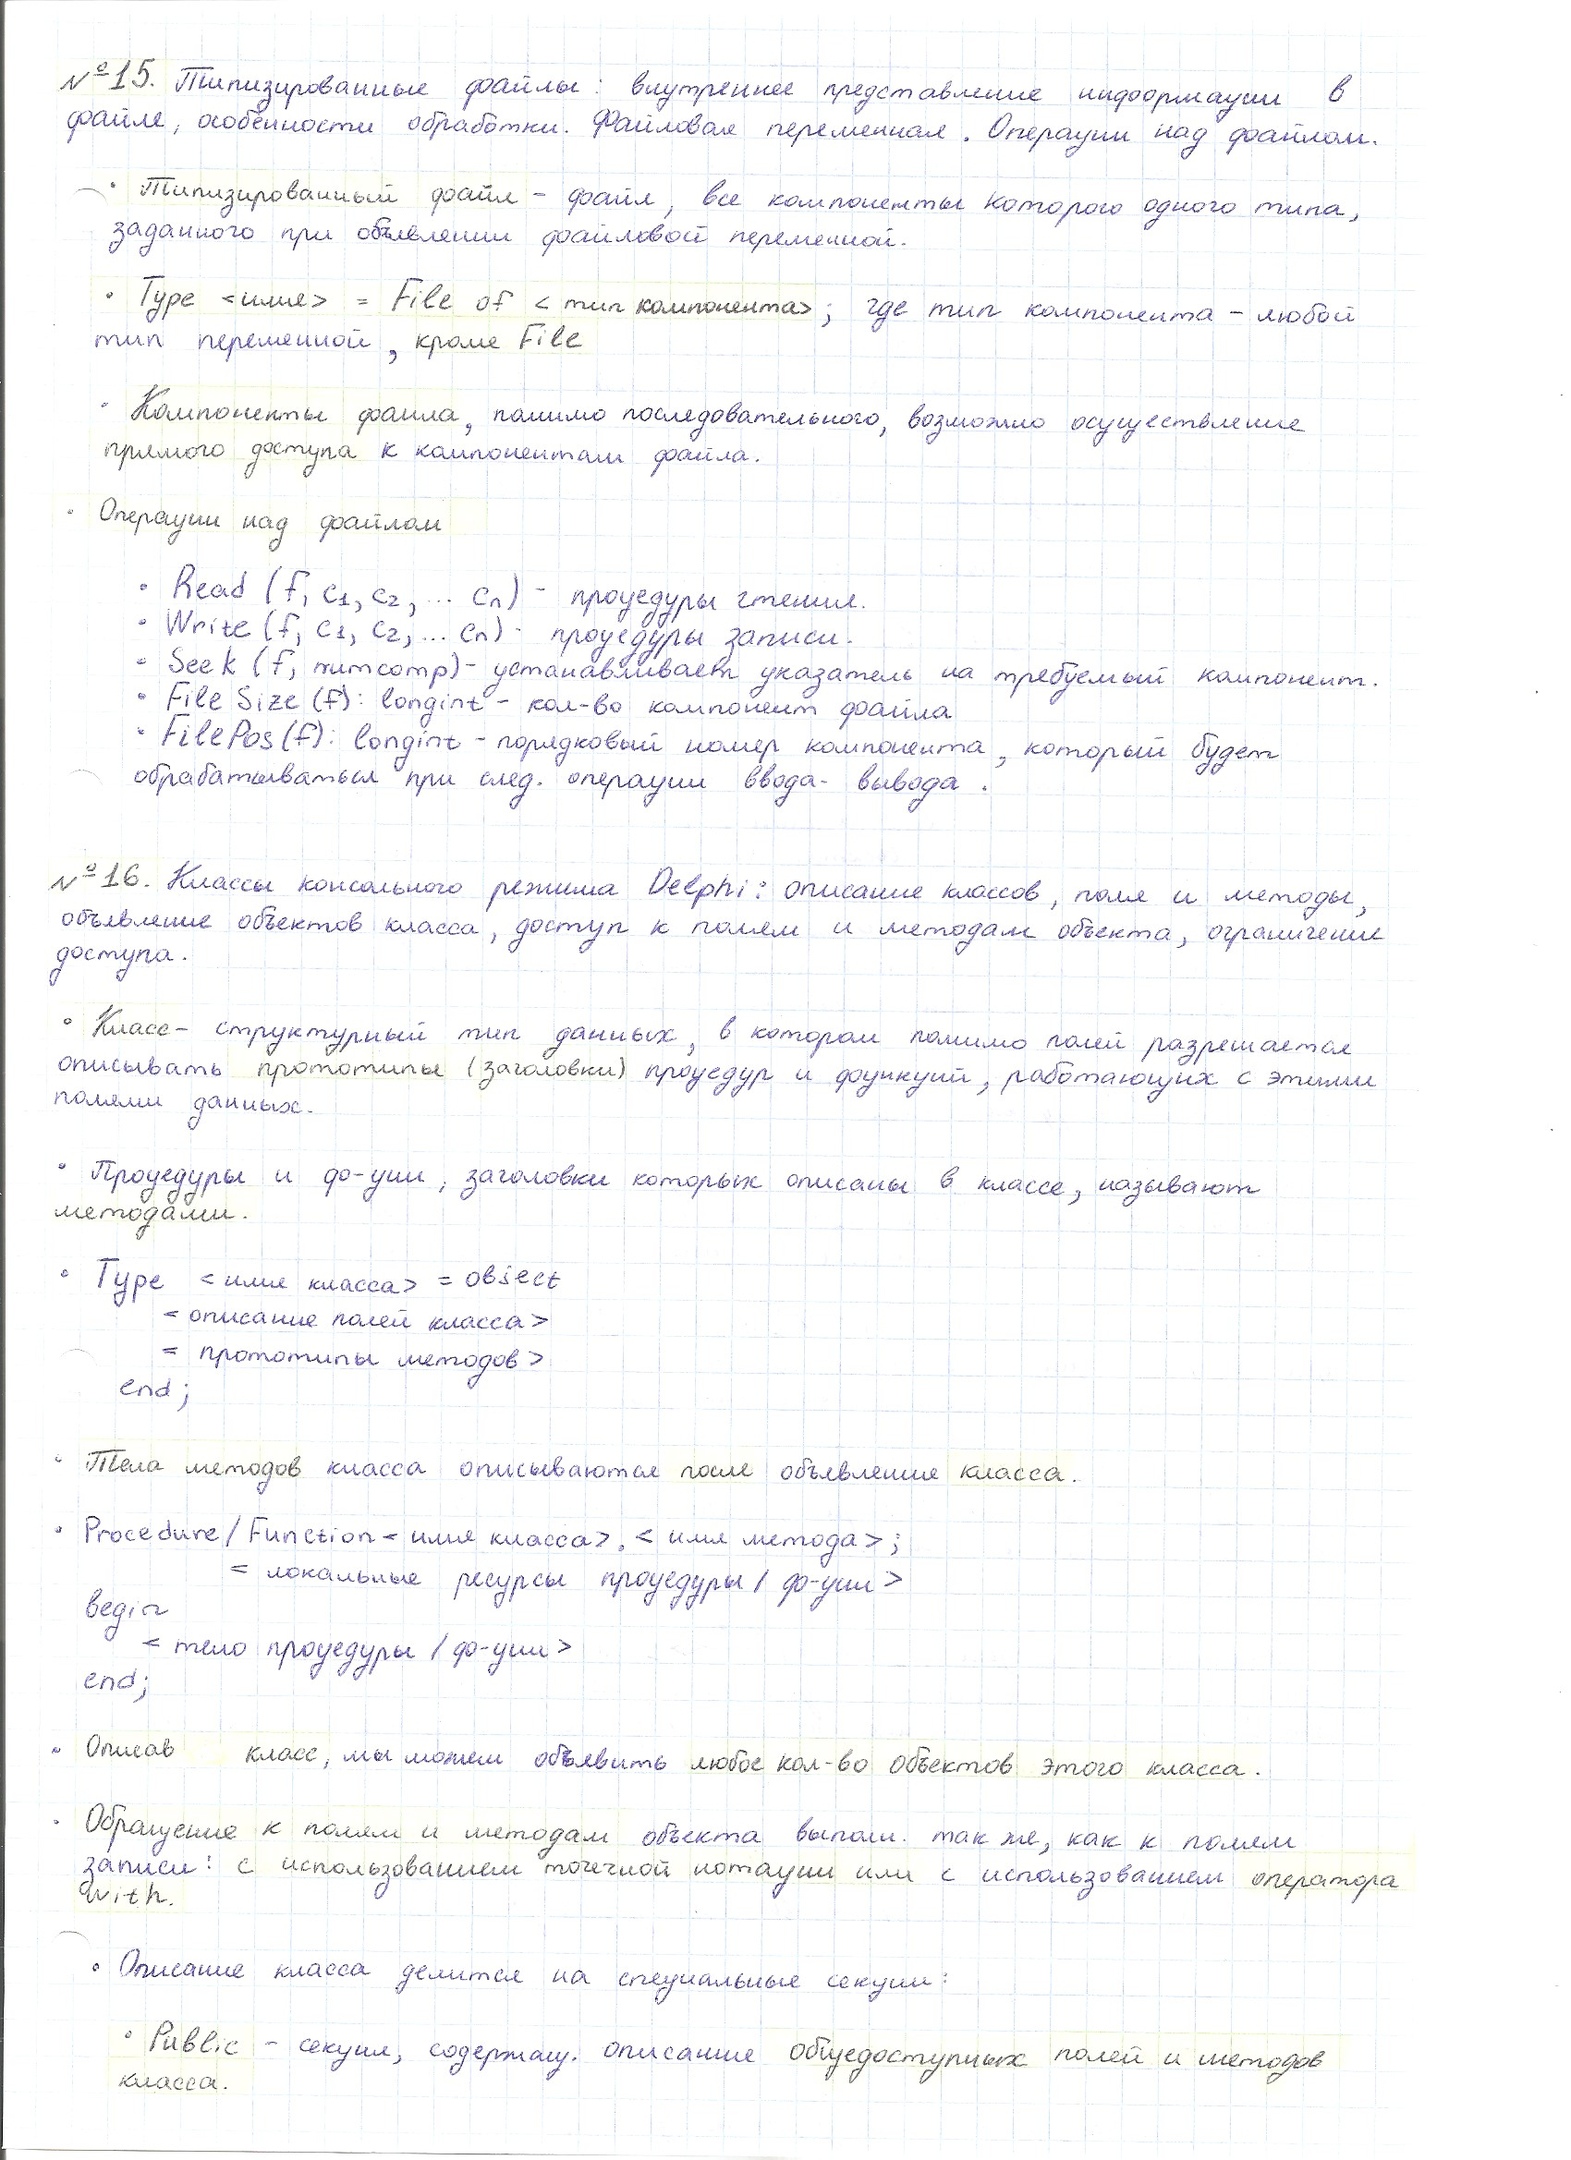 №15. Типизированные файлы: внутреннее представление информации в
файле, особенности обработки. Файловая переменная. Операции над файлом.
• Типизированный файл - файл, все компоненты которого одного типа,
заданного при объявлении файловой переменной.
• Type <имя> = File of <тип компонента>; где тип компонента - любой
тип переменной, кроме File
• Компоненты файла, помимо последовательного, возможно осуществление
прямого доступа к компонентам файла.
• Операции над файлом
• Read (f, c1, c2, ... cn) - процедуры чтения.
• Write (f, c1, c2, ... cn) - процедуры записи.
• Seek (f, numcomp) - устанавливает указатель на требуемый компонент.
• FileSize (f): longint - кол-во компонент файла
• FilePos (f): longint - порядковый номер компонента, который будет
обрабатываться при след. операции ввода-вывода.
№16. Классы консольного режима Delphi: описание классов, поля и методы,
объявление объектов класса, доступ к полям и методам объекта, ограничение
доступа.
• Класс - структурный тип данных, в котором помимо полей разрешается
описывать прототипы (заголовки) процедур и функций, работающих с этими
полями данных.
• Процедуры и ф-ции, заголовки которых описаны в классе, называют
методами.
• Type <имя класса> = object
< описание полей класса>
= прототипы методов>
end;
• Тела методов класса описываются после объявление класса.
• Procedure / Function < имя класса>.< имя метода>;
= локальные ресурсы процедуры / ф-ции>
begin
< тело процедуры / ф-ции>
end;
• Описав класс, мы можем объявить любое кол-во объектов этого класса.
• Обращение к полям и методам объекта выполн. так же, как к полям
записи: с использованием точечной нотации или с использованием оператора
With.
• Описание класса делится на специальные секции:
• Public - секция, содержащ. описание общедоступных полей и методов
класса.